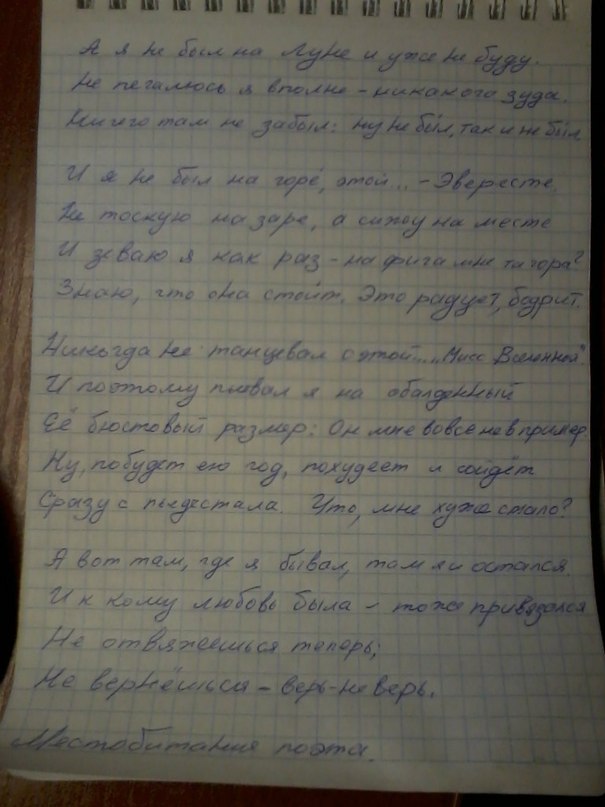 А я не был на Луне и уже не буду.
Не печалюсь я вполне - никакого зуда.
Ничего там не забыл: ну не был, так и не был
И я не был на горе, этой... - Эвересте.
Не тоскую на заре, а сижу на месте
И зеваю я как раз - на фига мне та гора?
Знаю, что она стоит. Это радует, бодрит.
Никогда не танцевал с этой... „Мисс Вселенной".
И поэтому плевал я на обалденный
Её бюстовый размер: Он мне вовсе не в пример
Ну, побудет ею год, похудеет и сойдёт
Сразу с пьедестала. Что, мне хуже стало?
А вот там, где я бывал, там я и остался.
И к кому любовь была - тоже привязался
Не отвяжешься теперь;
Не вернёшься - верь-не верь.
Местобитания поэта.